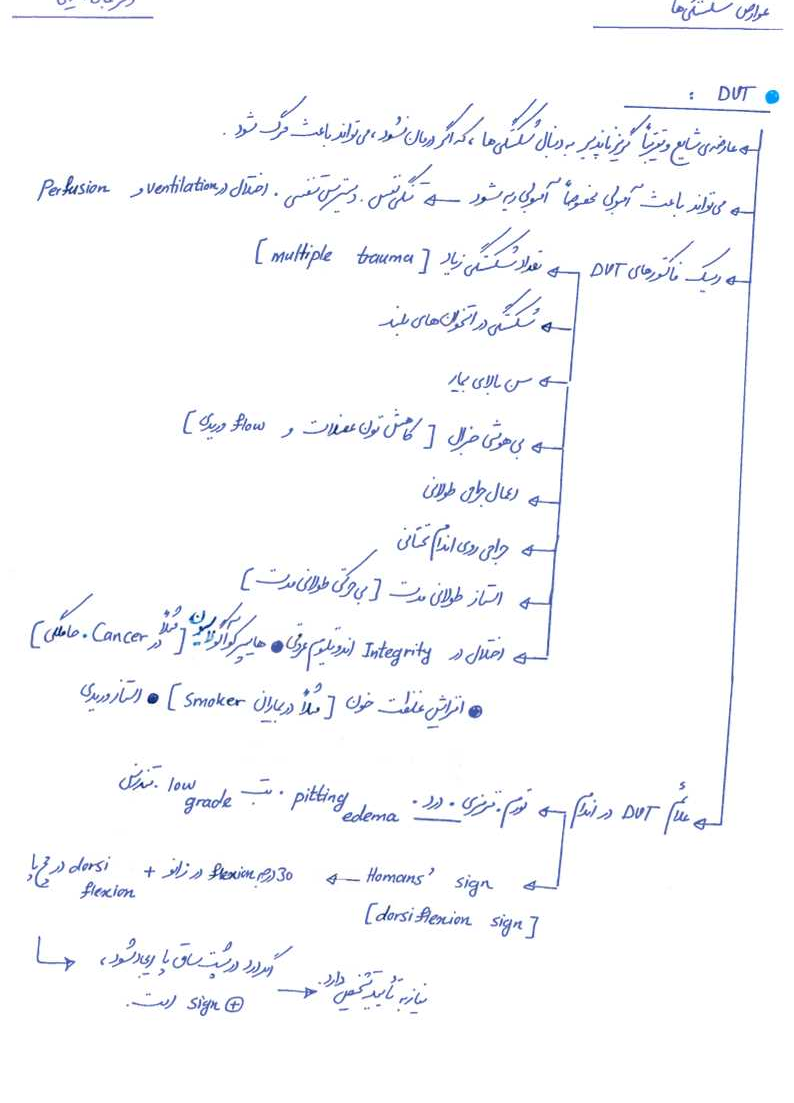 عوارض شکستگی‌ها
DVT :
عارضه‌ی شایع و تقریباً گریزناپذیر به دنبال شکستگی ها ، که اگر درمان نشود ، می‌تواند باعث مرگ شود .
می‌تواند باعث آمبولی مخصوصاً آمبولی ریه شود ← تنگی نفس . دیسترس تنفسی . اختلال در ventilation و Perfusion
ریسک فاکتورهای DVT ← تعداد شکستگی زیاد [ multiple trauma ]
← شکستگی در استخوان های بلند
← سن بالای بیمار
← بی هوشی جنرال [ کاهش تون عضلات و flow وریدی ]
← اعمال جراحی طولانی
← جراحی روی اندام تحتانی
← استاز طولانی مدت [ بی حرکتی طولانی مدت ]
← اختلال در Integrity اندوتلیوم عروقی ● هایپرکوآگولاسیون [ مثلاً در Cancer . حاملگی ]
● افزایش غلظت خون [ مثلاً در بیماران Smoker ] ● استاز وریدی
علائم DVT در اندام ← تورم . قرمزی . درد . pitting edema . تب low grade . تندرنس
← Homans' sign ← 30 درجه flexion در زانو + dorsi flexion در مچ پا
[ dorsiflexion sign ]
اگر درد در پشت ساق پا ایجاد شود ،
sign ⊕ است. → نیاز به تأیید تشخیص دارد.